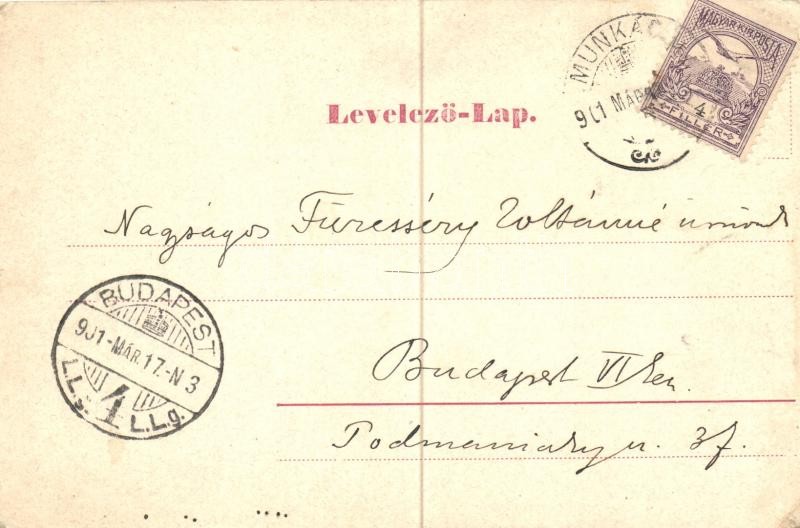 MUNKÁC
901 MÁR
MAGYAR KIR. POSTA
4
FILLÉR
Levelező-Lap.
Nagságos Füresséry Zoltánné úrnőnek
BUDAPEST
901-MÁR.17.-N 3
4
L.L.s. L.L.g.
Budapest VI ker.
Podmaniczky u. 37.